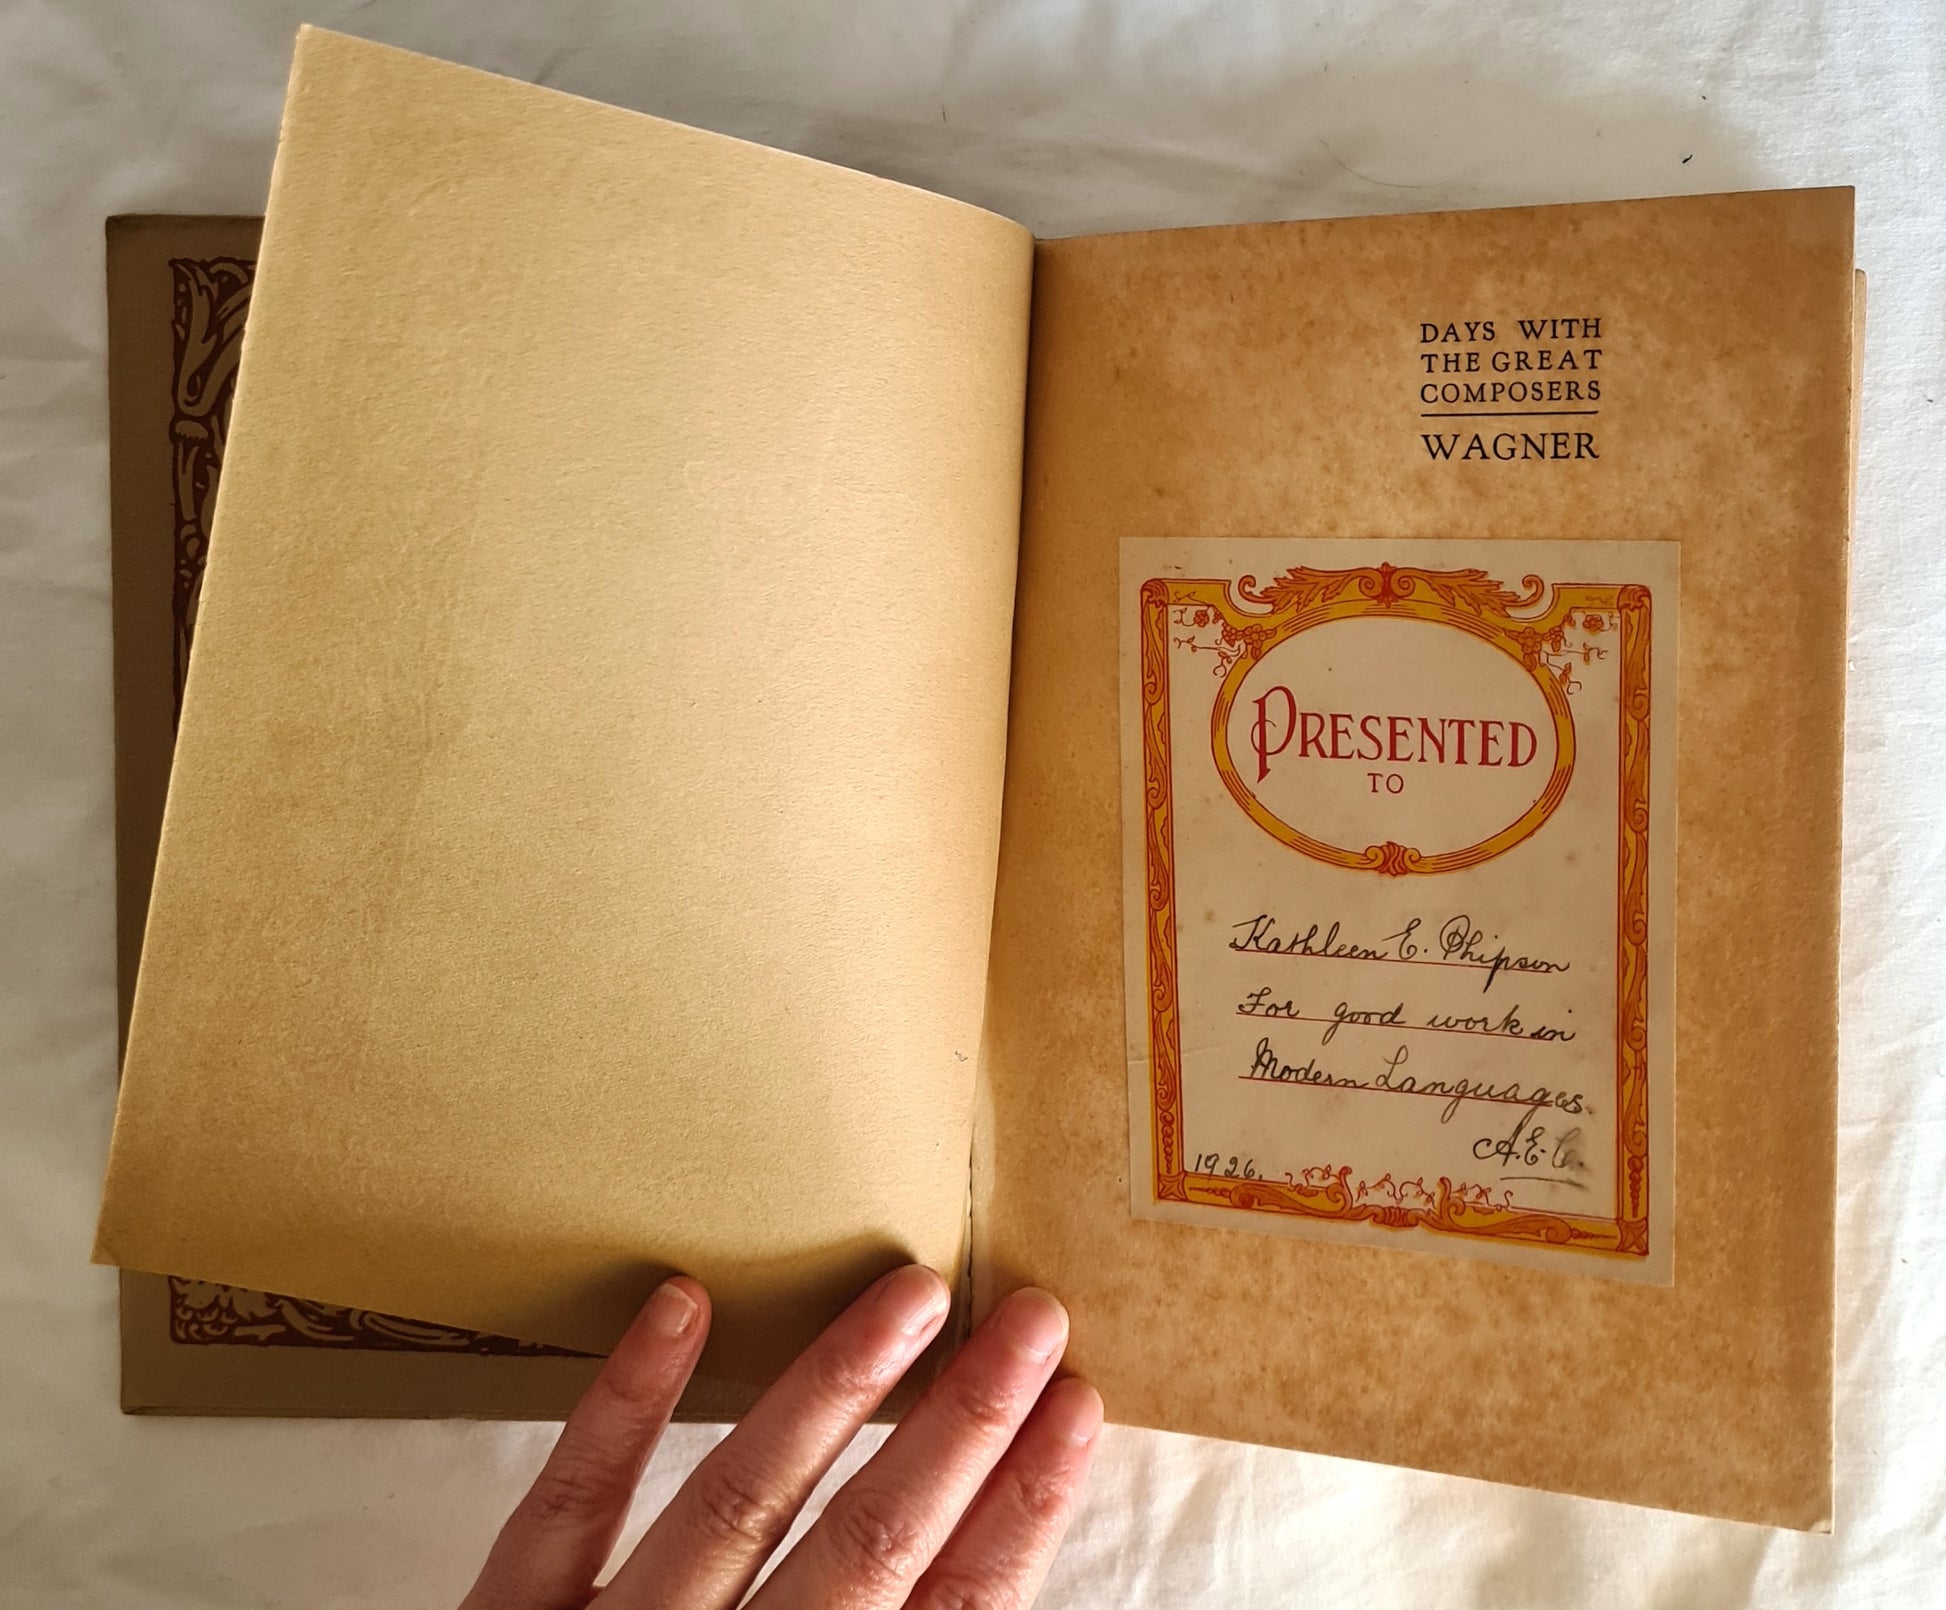 DAYS WITH
THE GREAT
COMPOSERS
WAGNER
PRESENTED
TO
Kathleen E. Phipson
For good work in
Modern Languages.
A.E.
1926.